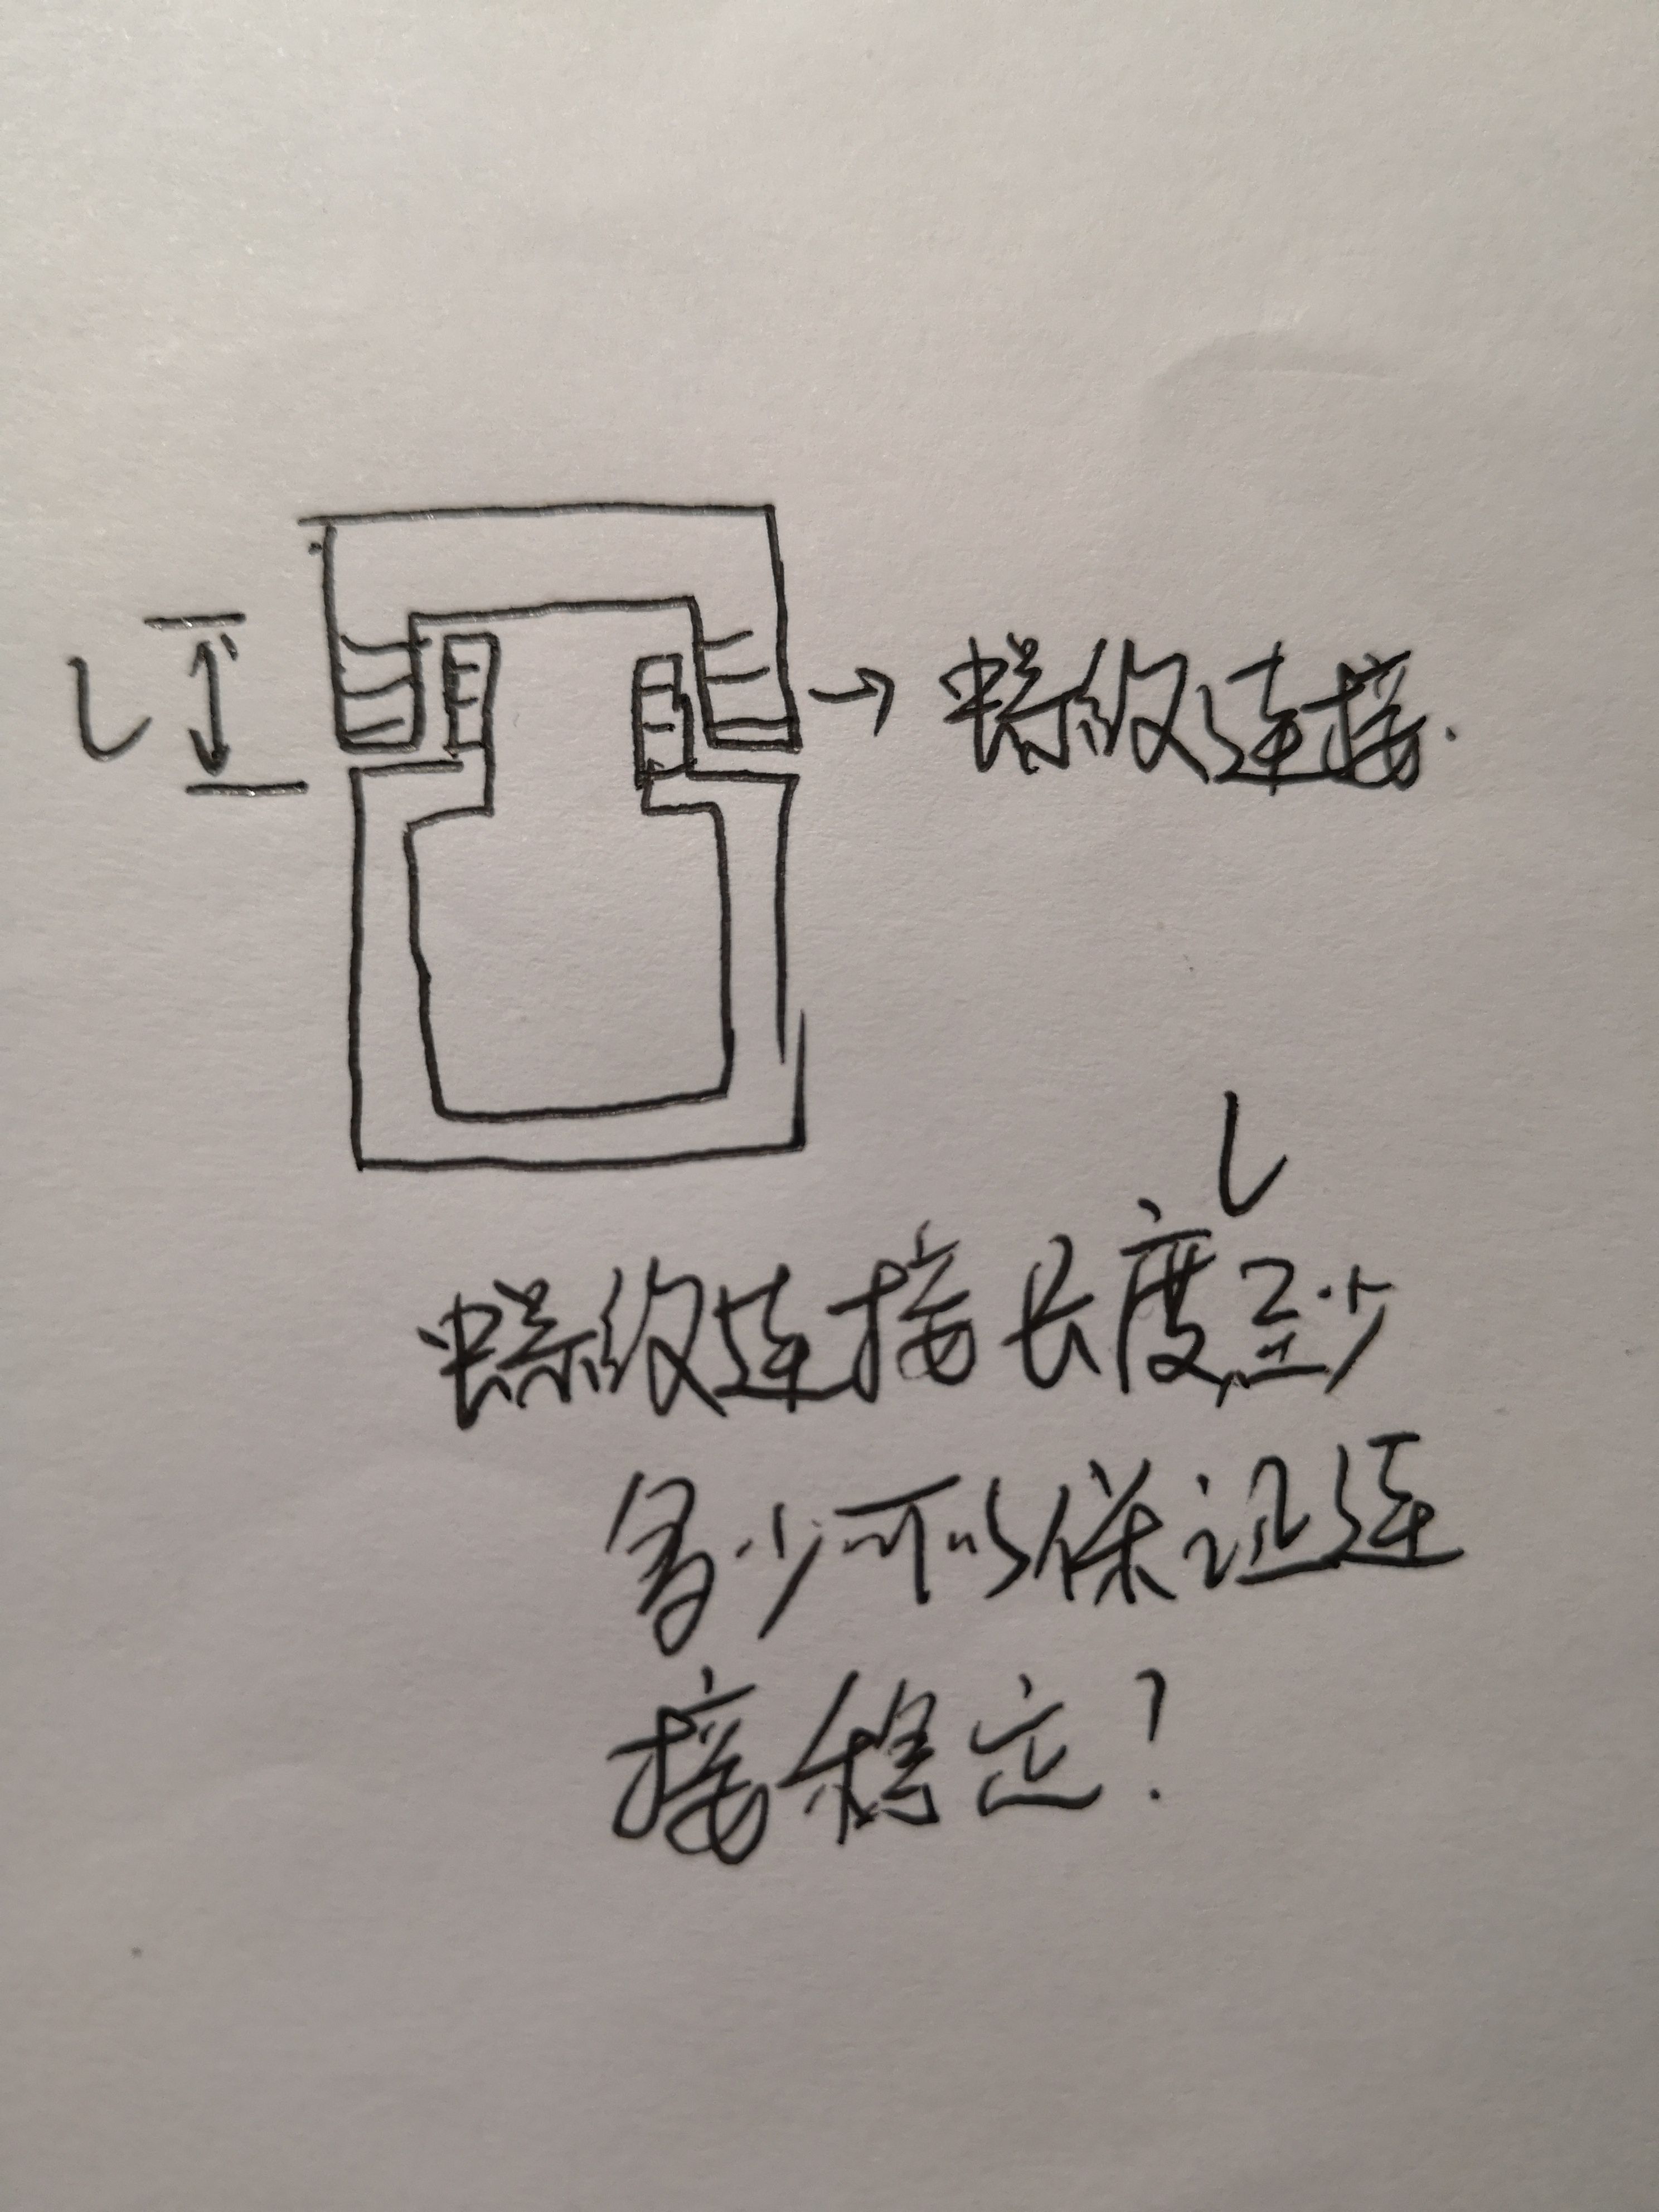 L
→螺纹连接.
L
螺纹连接长度至少
多少可以保证连
接稳定?